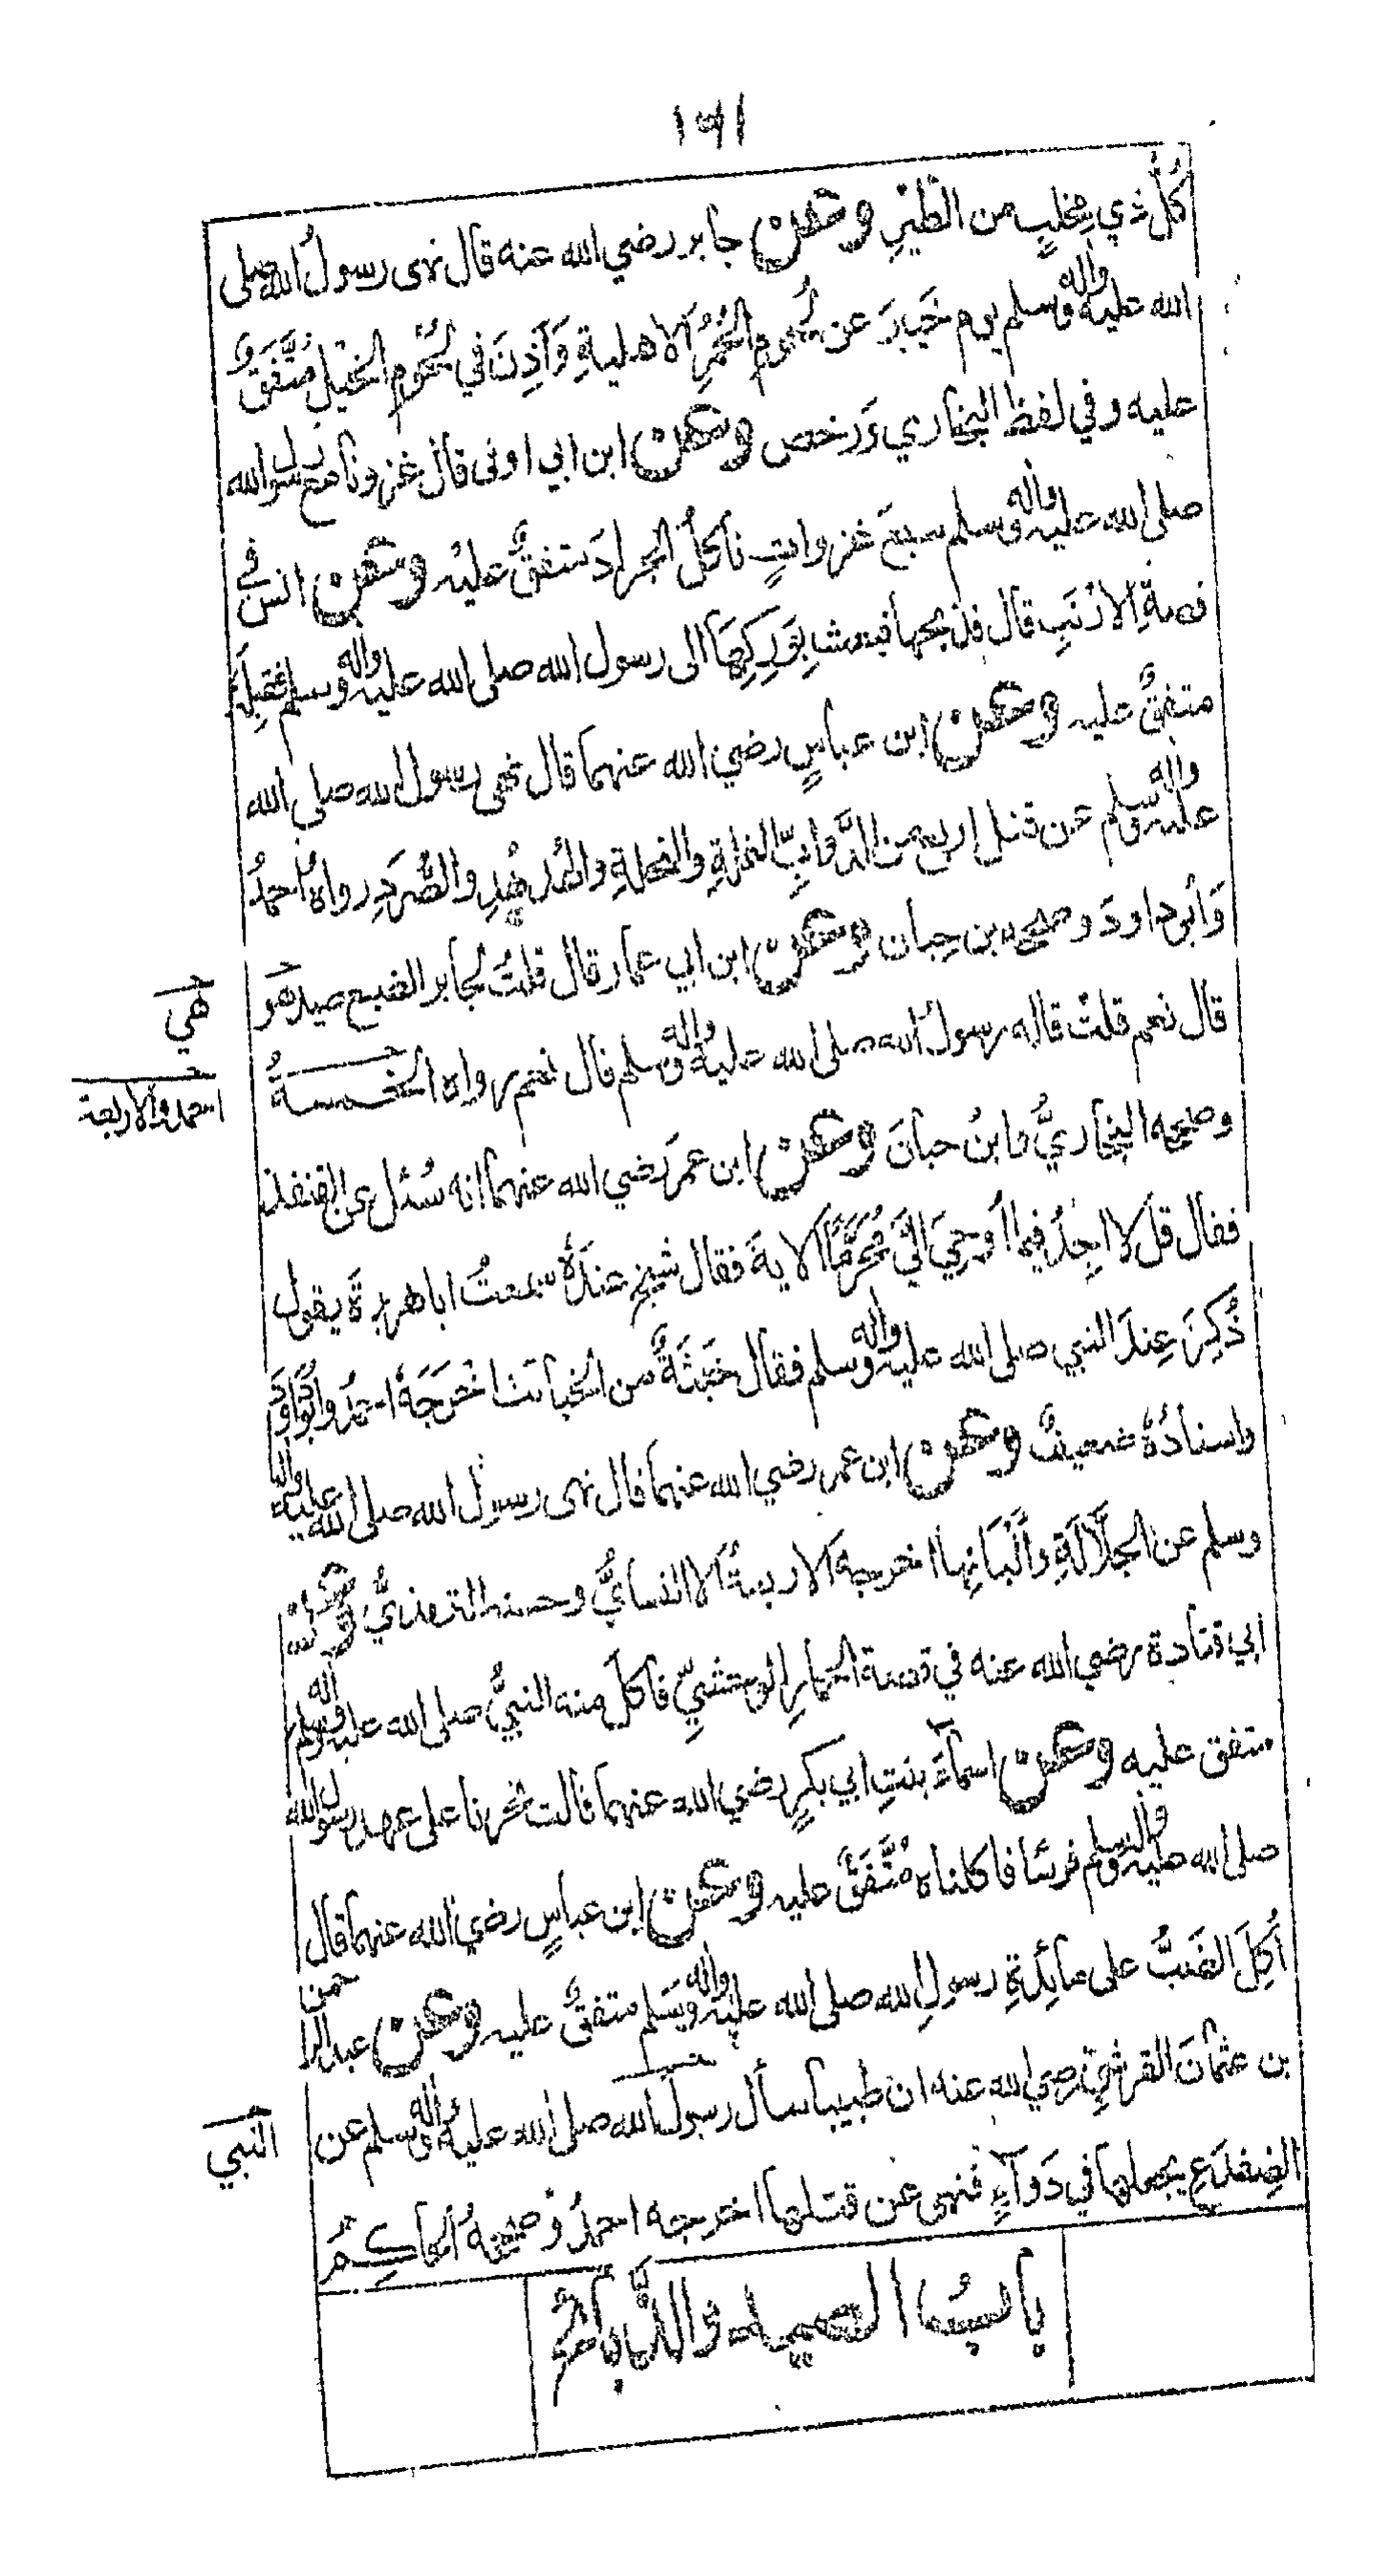 ١٩١
كُلّ ذي مِخلبٍ من الطَيْرِ وعن جابر رضي الله عنه قال نهى رسولُ الله صلى
الله عليه واله وسلم يوم خَيبرَ عن لُحومِ الحُمُرِ الاهليةِ وَأذِنَ في لُحُومِ الخَيْلِ مُتَّفَقٌ
عليه وفي لفظ البخاري وَرخص وعن ابن ابي اوفى قال غزونا مع رسول الله
صلى الله عليه واله وسلم سبعَ غزواتٍ ناكلُ الجرادَ متفقٌ عليْه وعن انس في
قصةِ الارْنَبِ قال فذبحها فبعث بِوَرِكِهَا الى رسول الله صلى الله عليه واله وسلم فقبِلَهُ
متفقٌ عليه وعن ابن عباسٍ رضي الله عنهما قال نهى رسول الله صلى الله
عليه واله وسلم عن قتل اربع من الدَّوابِّ النملةِ والنحلةِ والهُدْهُدِ والصُّرَدِ رواهُ احمدُ
وَأبو داودَ وصححه بن حِبان وعن ابن ابي عمار قال قلتُ لجابر الضبع صيد هو
هي
قال نعم قلتْ قاله رسولُ الله صلى الله عليه واله وسلم قال نعم رواه الخمسةُ
احمد والاربعة
وصححه البخاريُّ وابنُ حبانَ وعن ابن عمرَ رضي الله عنهما انه سُئل عن القنفذ
فقال قل لا اجِدُ فيما اُوحِيَ اليَّ مُحَرَّمًا الايةَ فقال شيخ عندَهُ سمعتُ ابا هريرةَ يقول
ذُكِرَ عِندَ النبي صلى الله عليه واله وسلم فقال خَبثَةٌ من الخبائث اخْرَجَهُ احمدُ وابُو دَاوُدَ
واسنادُهُ ضعيفٌ وعن ابن عمر رضي الله عنهما قال نهى رسول الله صلى الله عليه واله
وسلم عن الجلاَّلَةِ وألْبَانِها اخرجه الاربعةُ الا النسايُّ وحسنه الترمذيُّ وعن
ابي قتادة رضي الله عنه في قصة الحمارِ الوحشيِّ فاكلَ منه النبيُّ صلى الله عليه واله وسلم
متفق عليه وعن اسمآءَ بنتِ ابي بكرٍ رضي الله عنهما قالت نحرنا على عهد رسول الله
صلى الله عليه واله وسلم فرسًا فاكلناه مُتَّفَقٌ عليه وعن ابن عباسٍ رضي الله عنهما قال
أُكِلَ الضَبُّ على مائِدةِ رسولِ الله صلى الله عليه واله وسَلم متفقٌ عليه وعن عبد الرحمن
بن عثمانَ القرشيِّ رضي الله عنه ان طبيبا سأل رسول الله صلى الله عليه واله وسلم عن
النبي
الضِفدَعِ يجعلها في دَوآءٍ فنهى عن قتلها اخرجه احمدُ وصححهُ الحاكِمُ
بابُ الصيد والذَّبائح